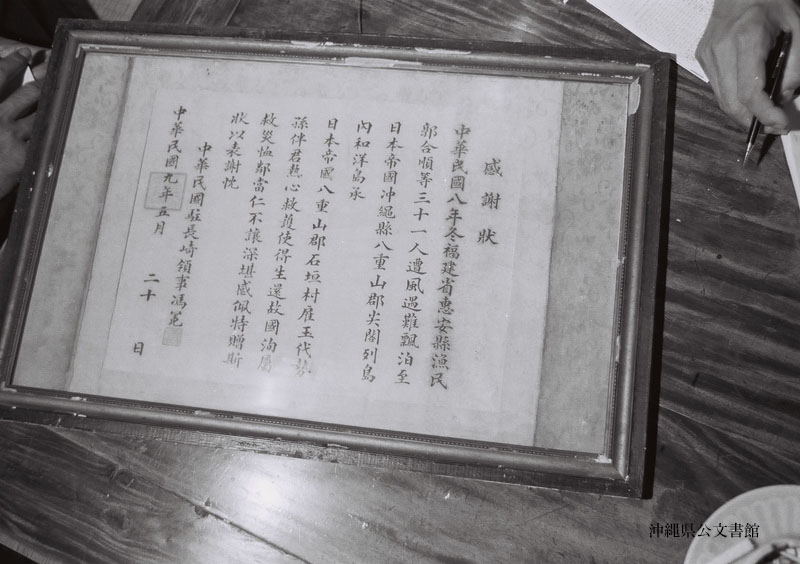 感謝狀
中華民國八年冬福建省惠安縣漁民
郭合順等三十一人遭風遇難飄泊至
日本帝國冲繩縣八重山郡尖閣列島
內和洋島承
日本帝國八重山郡石垣村雇玉代勢
孫伴君熱心救護使得生還故國洵屬
救災恤鄰當仁不讓深堪感佩特贈斯
狀以表謝忱
中華民國駐長崎領事馮冕
中華民國九年五月二十日
沖縄県公文書館